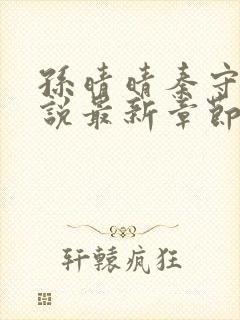 孫晴晴秦守
說最新章節
轩辕疯狂